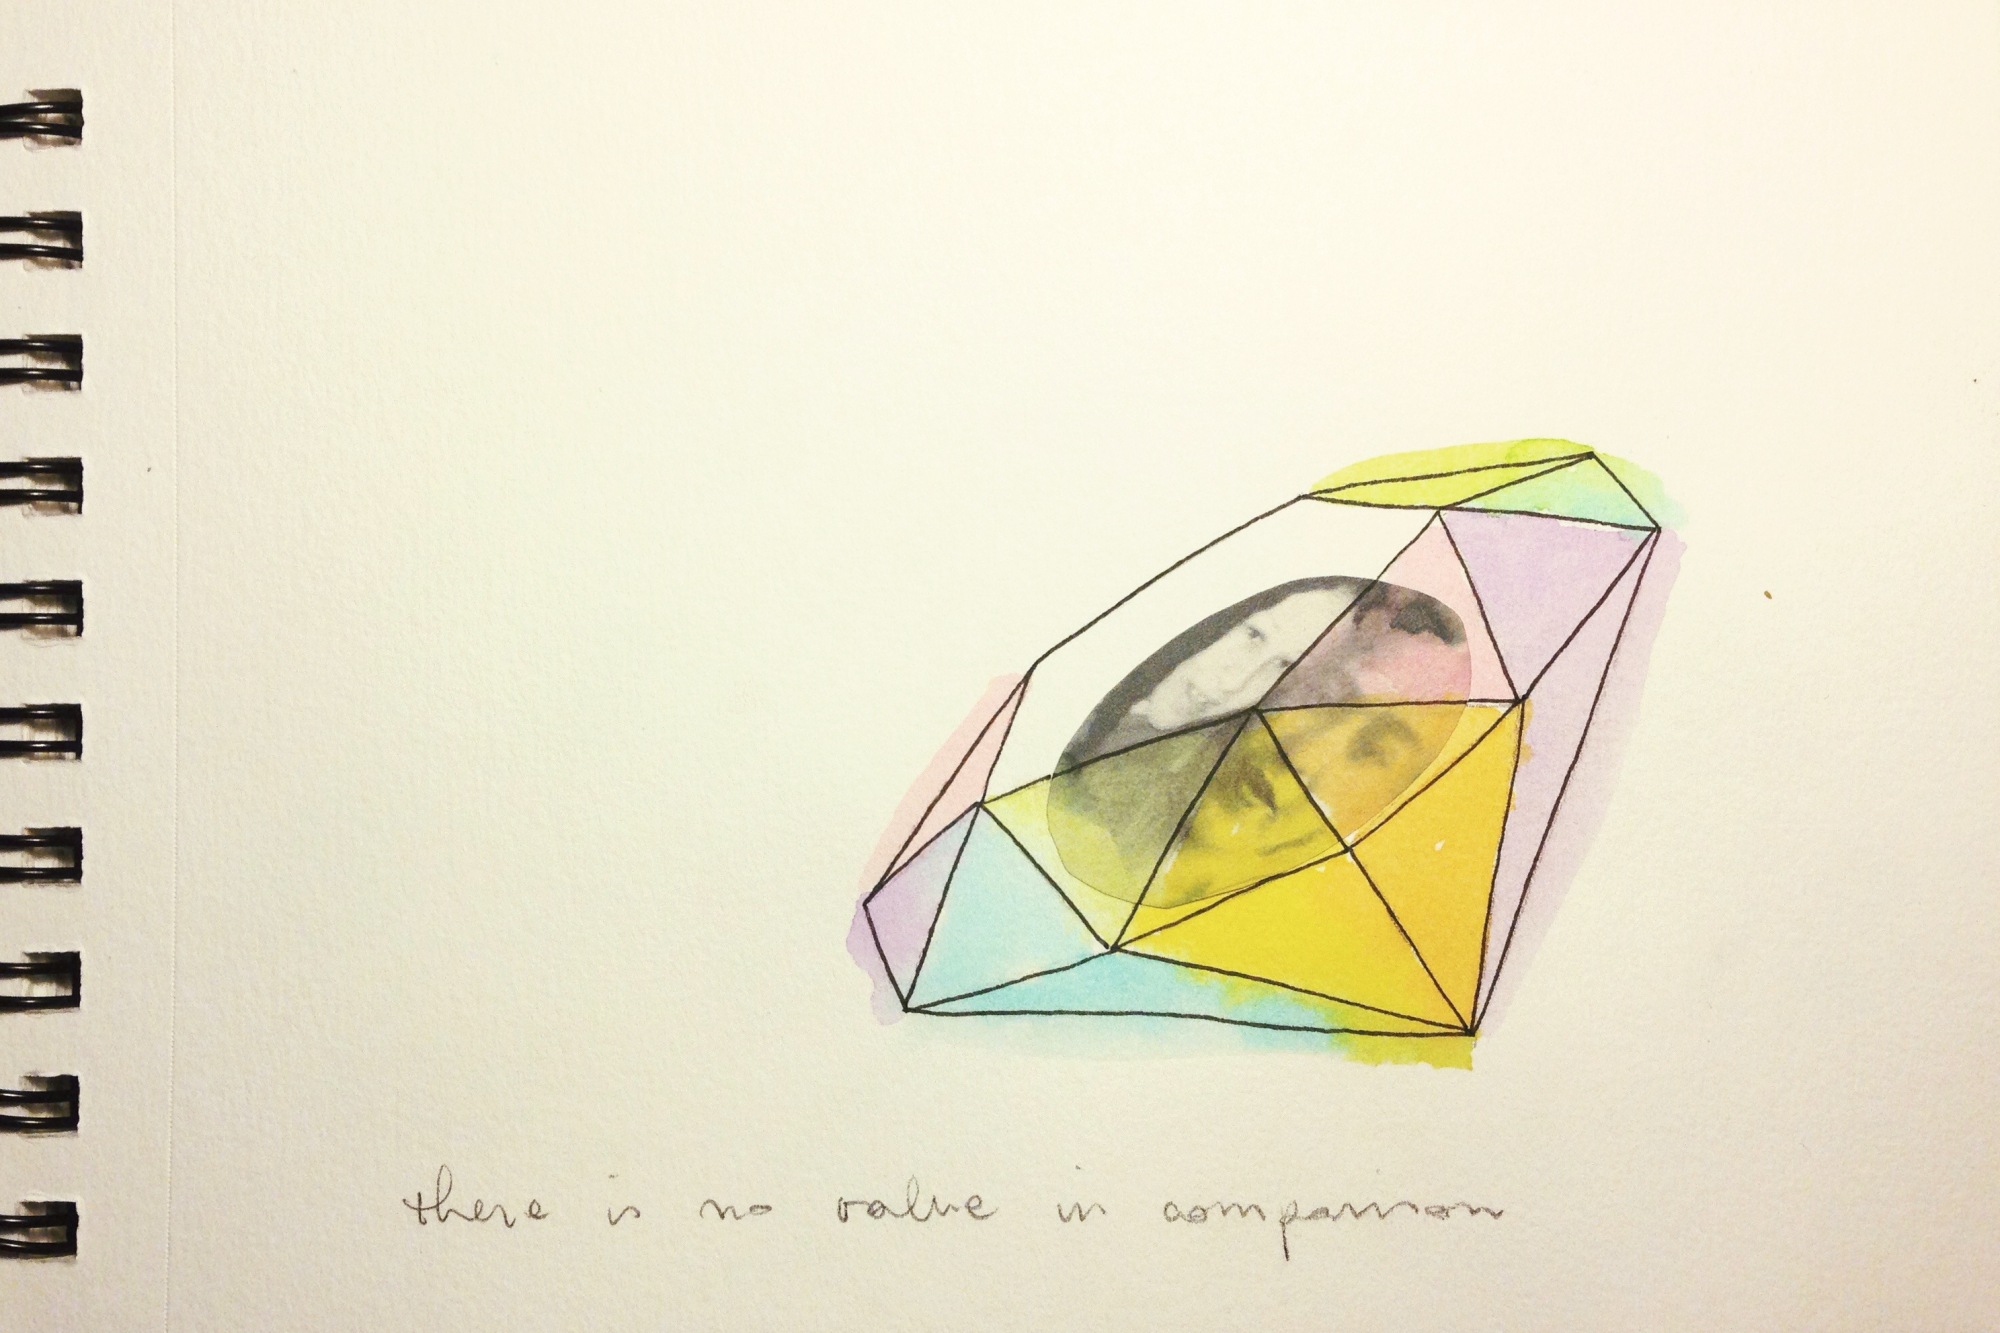 there is no value in comparison